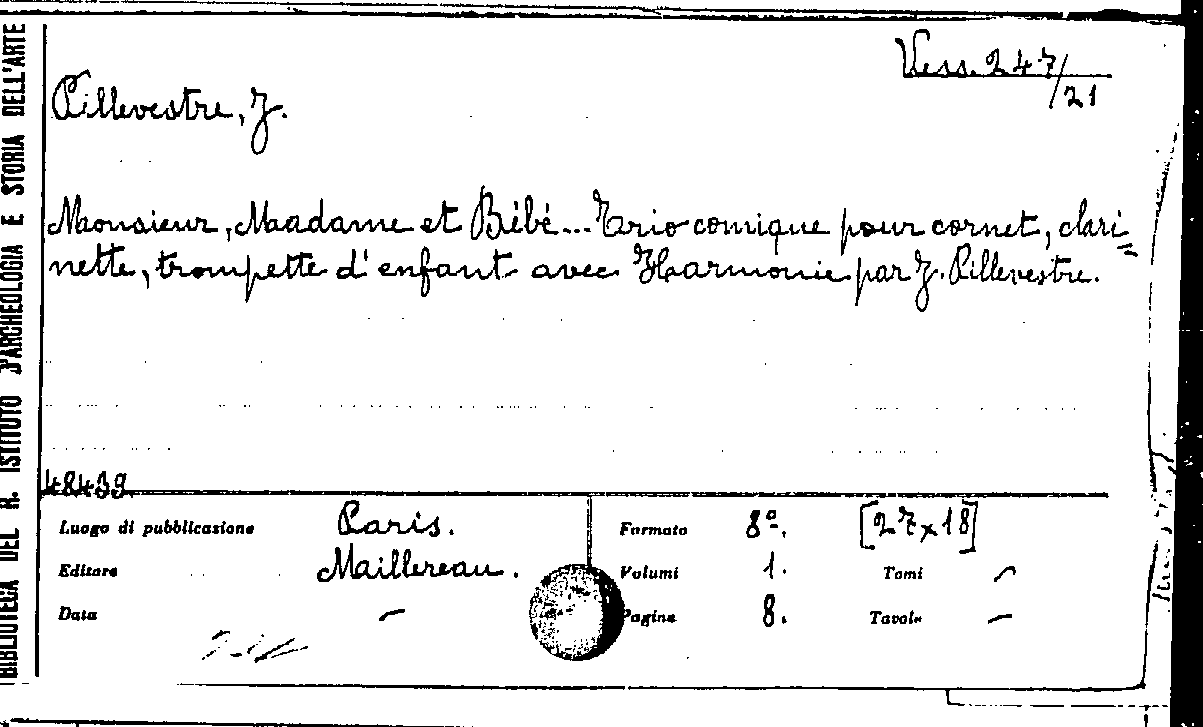 BIBLIOTECA DEL R. ISTITUTO D'ARCHEOLOGIA E STORIA DELL'ARTE
Vess. 247/21
Pillevestre, J.
Monsieur, Maadame et Bébé... Trio comique pour cornet, clari=
nette, trompette d'enfant avec Harmonie par J. Pillevestre.
48439
Luogo di pubblicazione Paris. Formato 8º. [27x18]
Editore Maillereau. Volumi 1. Tomi –
Data – Pagine 8. Tavole –